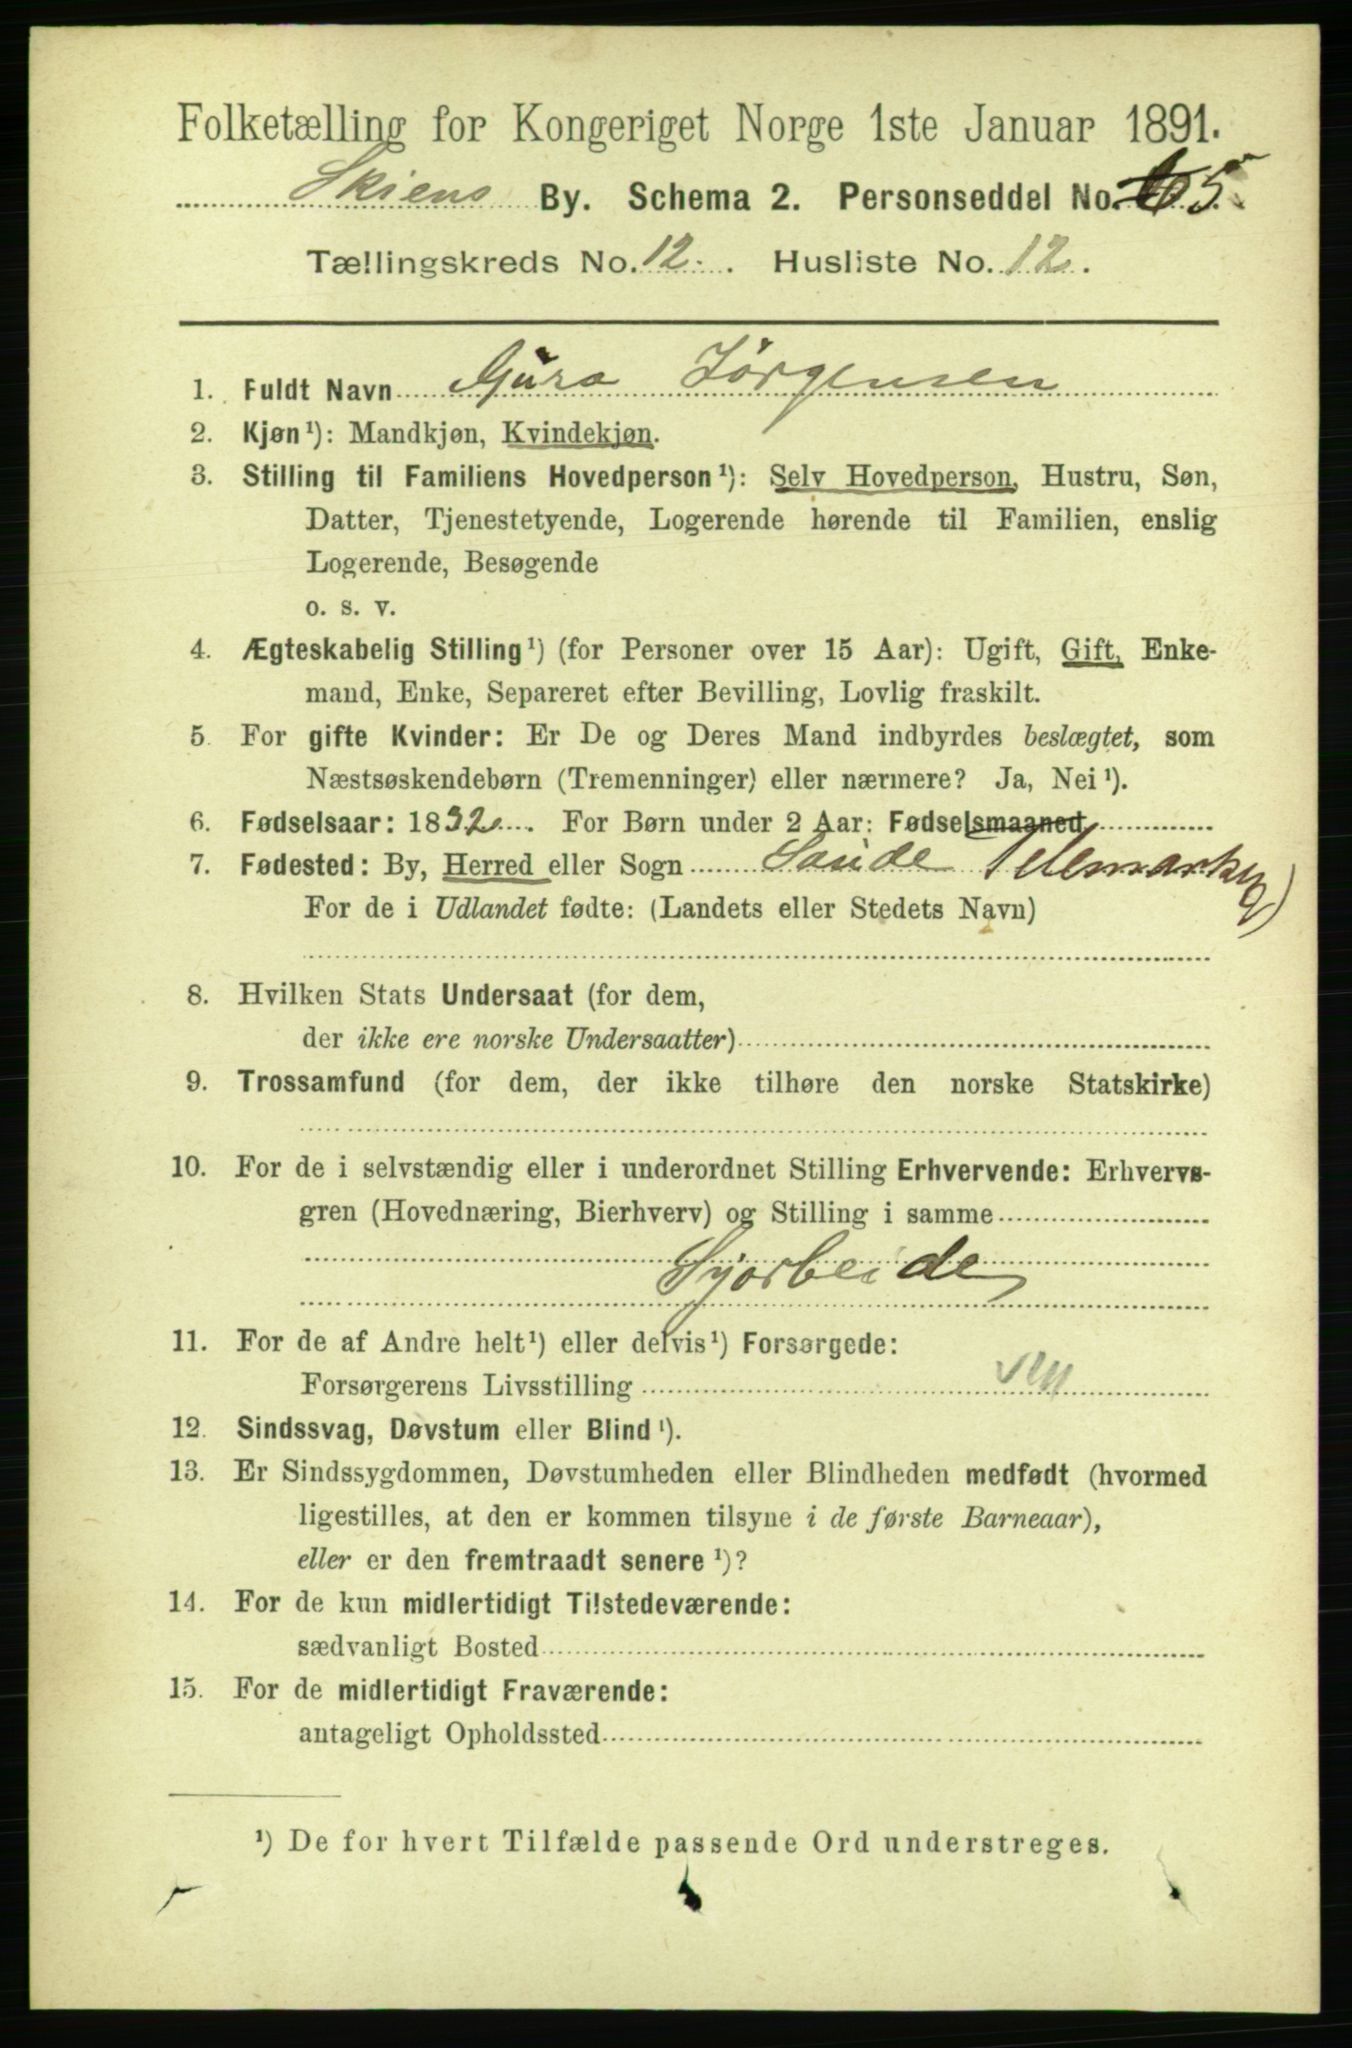 Folketælling for Kongeriget Norge 1ste Januar 1891.
Skiens By. Schema 2. Personseddel No. 5
Tællingskreds No. 12. Husliste No. 12.
1. Fuldt Navn Gura Jörgensen
2. Kjøn¹): Mandkjøn, Kvindekjøn.
3. Stilling til Familiens Hovedperson¹): Selv Hovedperson, Hustru, Søn,
Datter, Tjenestetyende, Logerende hørende til Familien, enslig
Logerende, Besøgende
o. s. v.
4. Ægteskabelig Stilling¹) (for Personer over 15 Aar): Ugift, Gift, Enke-
mand, Enke, Separeret efter Bevilling, Lovlig fraskilt.
5. For gifte Kvinder: Er De og Deres Mand indbyrdes beslægtet, som
Næstsøskendebørn (Tremenninger) eller nærmere? Ja, Nei¹).
6. Fødselsaar: 1832. For Børn under 2 Aar: Fødselsmaaned
7. Fødested: By, Herred eller Sogn Saude Telemarken)
For de i Udlandet fødte: (Landets eller Stedets Navn)
8. Hvilken Stats Undersaat (for dem,
der ikke ere norske Undersaatter)
9. Trossamfund (for dem, der ikke tilhøre den norske Statskirke)
10. For de i selvstændig eller i underordnet Stilling Erhvervende: Erhvervs-
gren (Hovednæring, Bierhverv) og Stilling i samme
Syarbeide
11. For de af Andre helt¹) eller delvis¹) Forsørgede:
Forsørgerens Livsstilling
12. Sindssvag, Døvstum eller Blind¹).
13. Er Sindssygdommen, Døvstumheden eller Blindheden medfødt (hvormed
ligestilles, at den er kommen tilsyne i de første Barneaar),
eller er den fremtraadt senere¹)?
14. For de kun midlertidigt Tilstedeværende:
sædvanligt Bosted
15. For de midlertidigt Fraværende:
antageligt Opholdssted
¹) De for hvert Tilfælde passende Ord understreges.